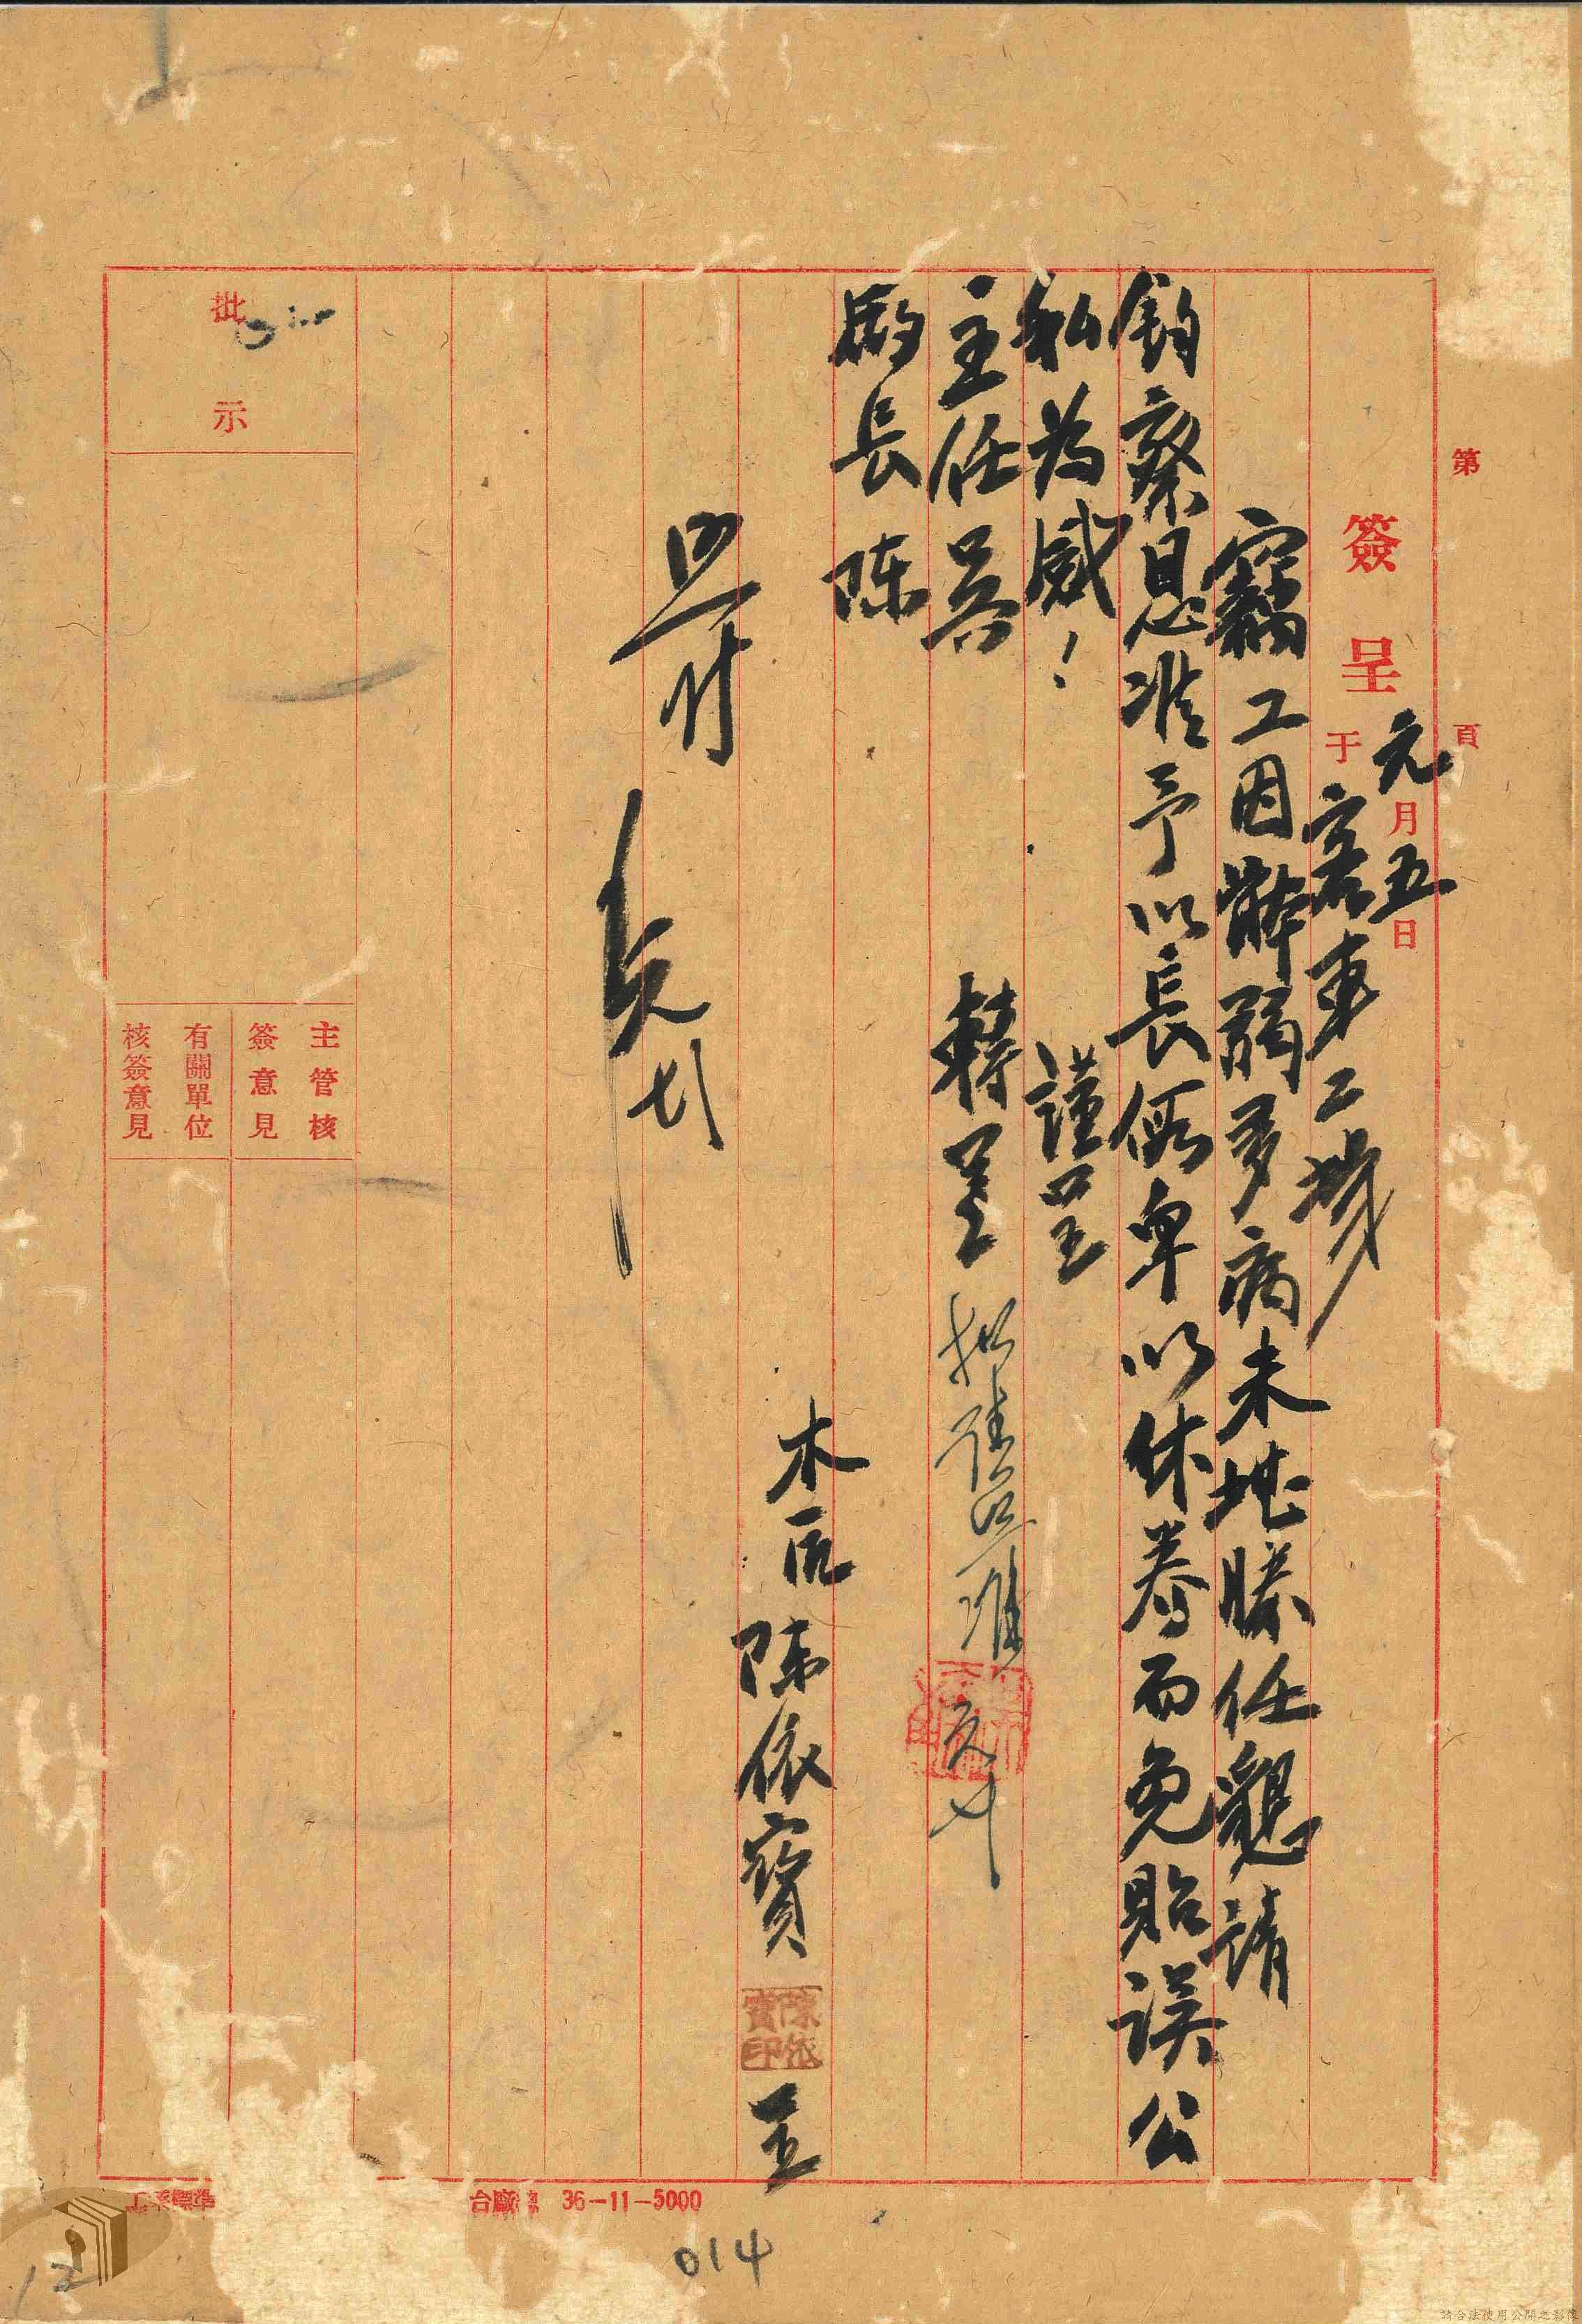 第 頁
簽呈 元月五日
于 客車工場
竊工因體弱多病未堪勝任懇請
鈞察恩准予以長假卑以休養而免貽誤公
私為感!
謹呈
主任吳 轉呈
廠長陳
木匠 陳依寶 呈
陳依寶印
批示
主管核簽意見
有關單位核簽意見
台廠 36-11-5000
014
12
請合法使用公開之影像